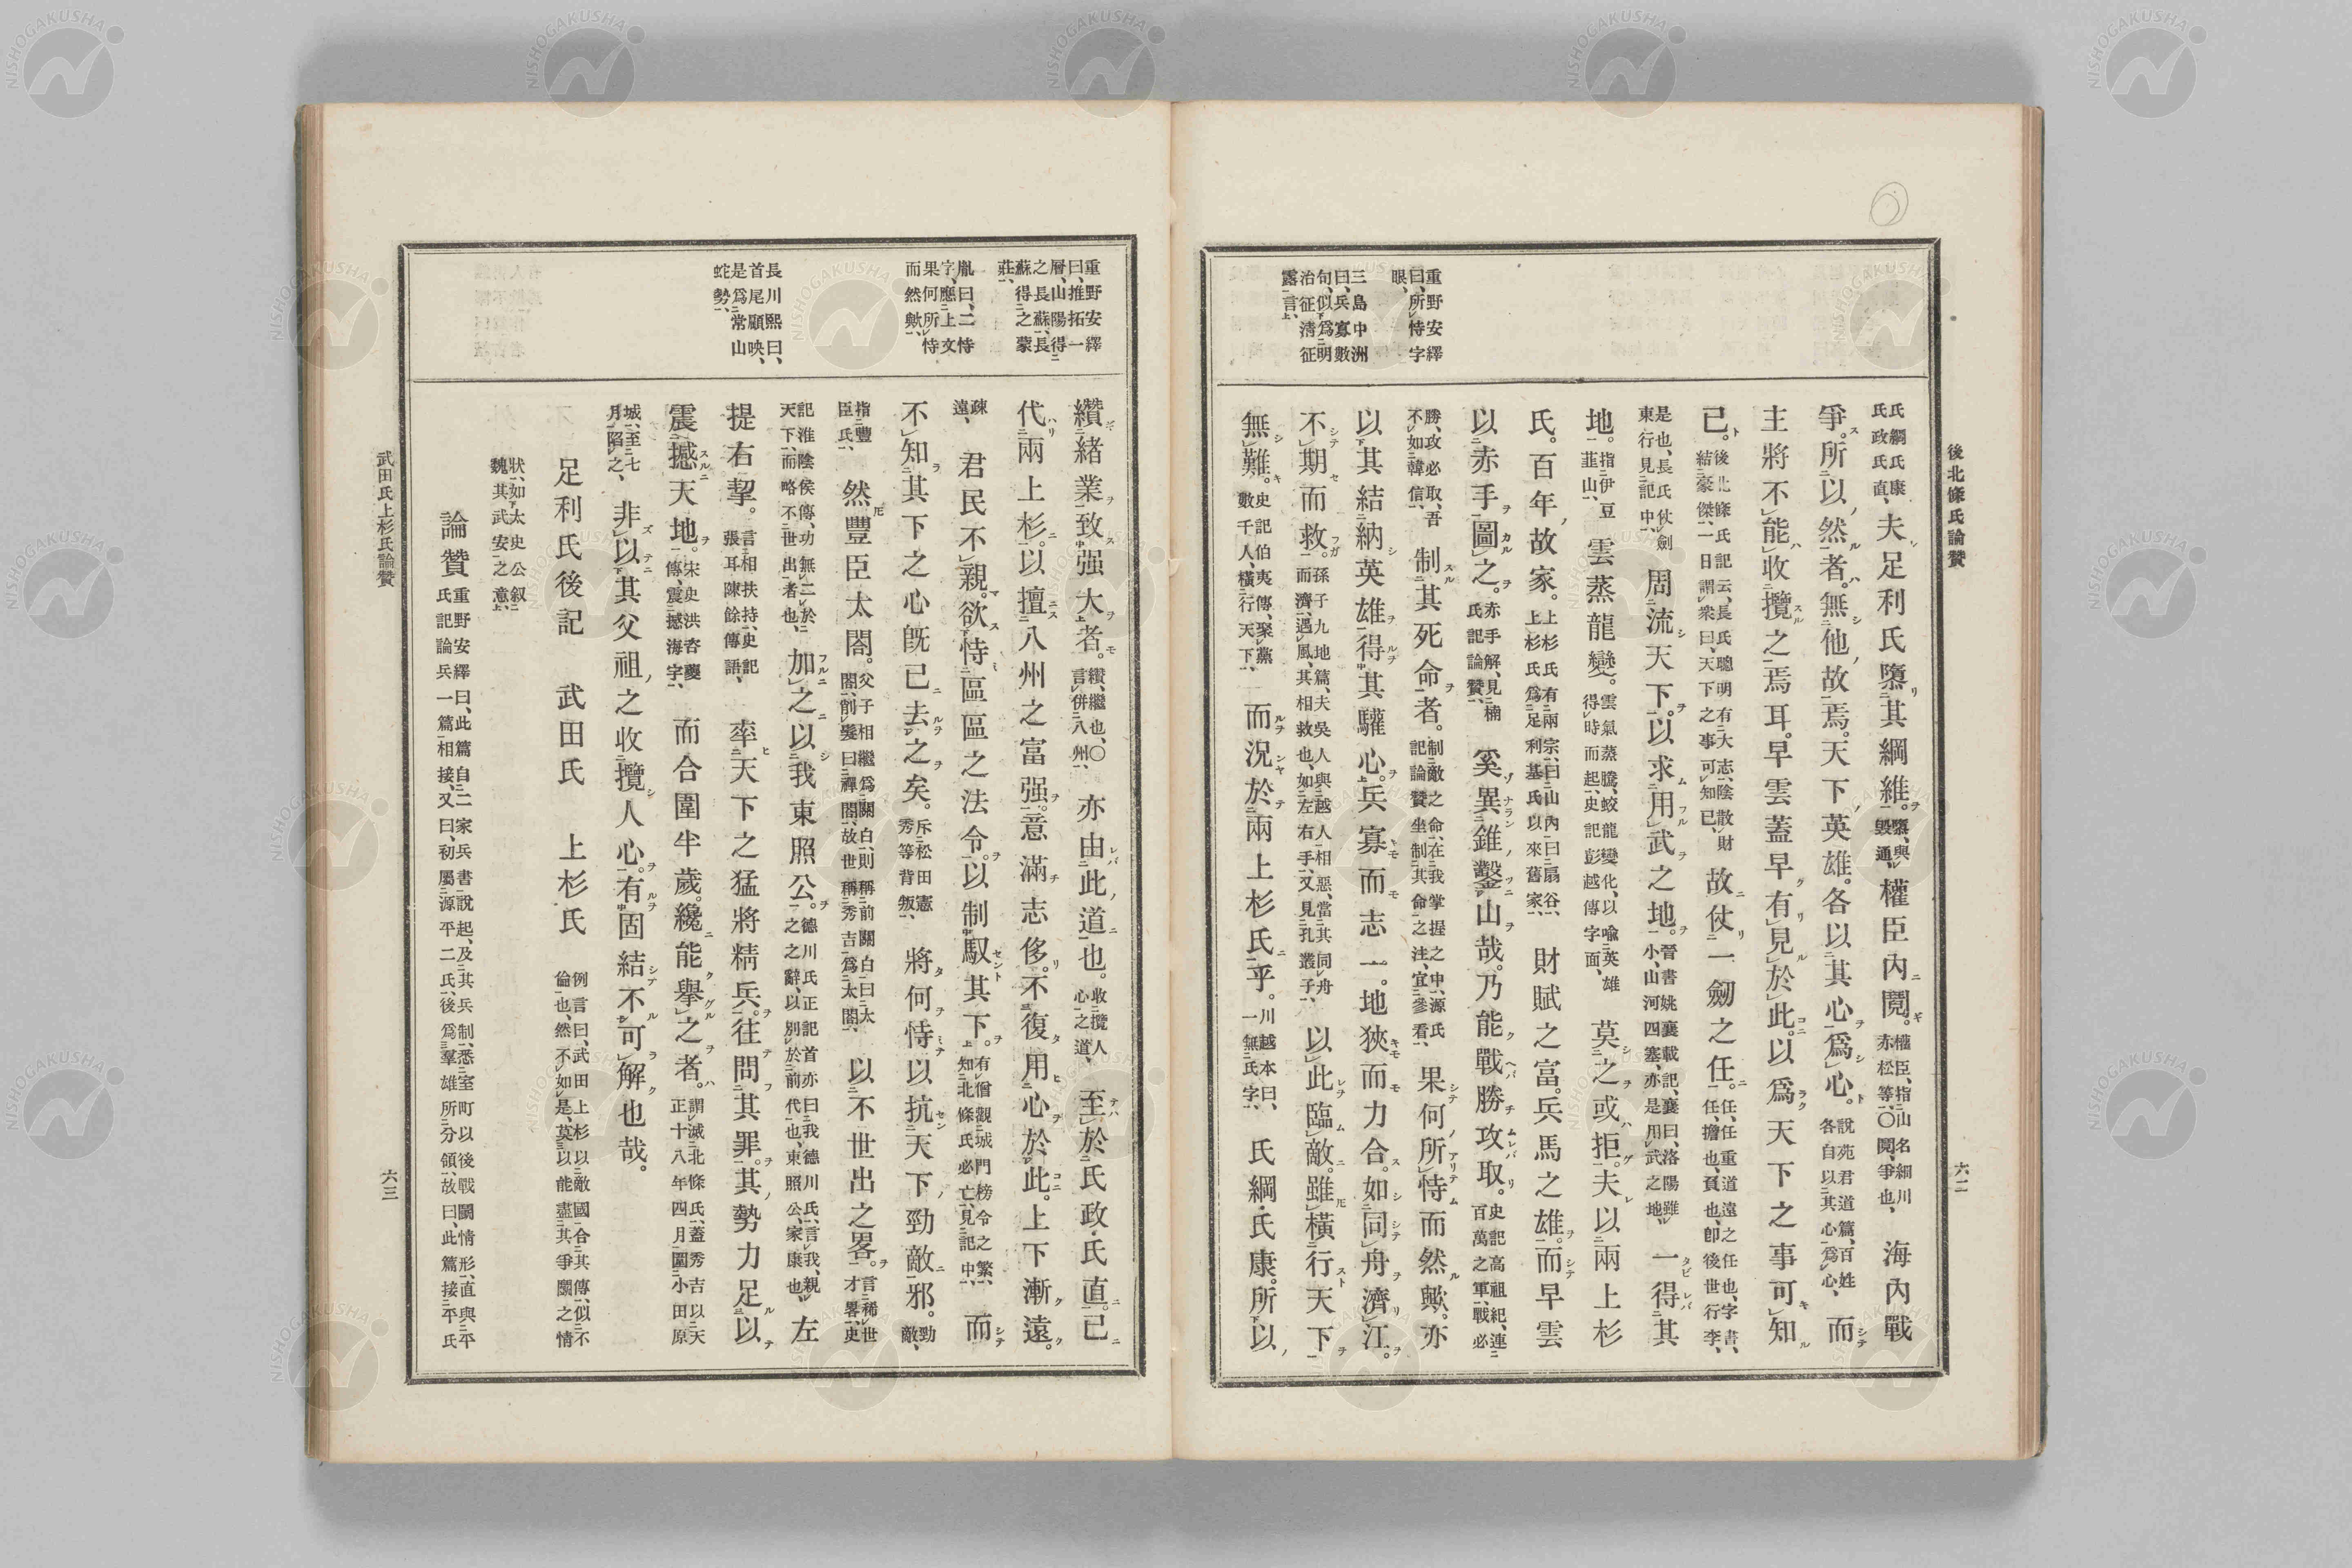 後北條氏論贊
六二
重野安繹
曰、所恃字
眼、
三島中洲
曰、兵寡數
句、似爲明
治征淸征
露言、
氏綱氏康
氏政氏直、夫足利氏隳其綱維。隳、與
毀通、權臣內鬩。權臣、指山名細川
赤松等、〇鬩、爭也、海內戰
爭。所以然者。無他故焉。天下英雄。各以其心爲心。說苑君道篇、百姓
各自以其心爲心、而
主將不能收攬之焉耳。早雲蓋早有見於此。以爲天下之事可知
已。後北條氏記云、長氏聰明有大志、陰散財
結豪傑、一日謂衆曰、天下之事可知已、故仗一劒之任。任、任重道遠之任也、字書、
任、擔也、負也、卽後世行李、
是也、長氏仗劍
東行見記中、周流天下。以求用武之地。晉書姚襄載記、襄曰、洛陽雖
小、山河四塞、亦是用武之地、一得其
地。指伊豆
韮山、雲蒸龍變。雲氣蒸騰、蛟龍變化、以喩英雄
得時而起、史記彭越傳字面、莫之或拒。夫以兩上杉
氏。百年故家。上杉氏有兩宗、曰山內、曰扇谷、
上杉氏爲足利基氏以來舊家、財賦之富。兵馬之雄。而早雲
以赤手圖之。赤手解、見楠
氏記論贊、奚異錐鑿山哉。乃能戰勝攻取。史記高祖紀、連
百萬之軍、戰必
勝、攻必取、吾
不如韓信、制其死命者。制敵之命、在我掌握之中、源氏
記論贊坐制其命之注、宜參看、果何所恃而然歟。亦
以其結納英雄。得其驩心。兵寡而志一。地狹而力合。如同舟濟江。
不期而救。孫子九地篇、夫吳人與越人相惡、當其同舟
而濟、遇風、其相救也、如左右手、又見孔叢子、以此臨敵。雖橫行天下
無難。史記伯夷傳、聚黨
數千人、橫行天下、而況於兩上杉氏乎。川越本曰、
一無氏字、氏綱・氏康。所以
重野安繹
曰、推拓一
層、山陽得
之長蘇、長
蘇得之蒙
莊、
胤曰、二恃
字、應上文
果何所恃
而然歟、
長川熙曰、
首尾顧映、
是爲常山
蛇勢、
纘緖業。致强大者。纘、繼也、〇
言併八州、亦由此道也。收攬人
心之道、至於氏政・氏直。已
代兩上杉。以擅八州之富强。意滿志侈。不復用心於此。上下漸遠。
疎
遠、君民不親。欲恃區區之法令。以制馭其下。有僧觀城門榜令之繁、
知北條氏必亡、見記中、而
不知其下之心旣已去之矣。斥松田憲
秀等背叛、將何恃以抗天下勁敵邪。勁
敵、
指豐
臣氏、然豐臣太閤。父子相繼爲關白、則稱前關白曰太
閤、削髮曰禪閤、故世稱秀吉爲太閤、以不世出之畧。言稀世
才畧、史
記淮陰侯傳、功無二於
天下、而略不世出者也、加之以我東照公。德川氏正記首亦曰我德川氏、言我、親
之之辭、以別於前代也、東照公、家康也、左
提右挈。言相扶持、史記
張耳陳餘傳語、率天下之猛將精兵。往問其罪。其勢力足以
震撼天地。宋史洪咨夔
傳、震撼海字、而合圍半歲。纔能擧之者。謂滅北條氏、蓋秀吉以天
正十八年四月圍小田原
城、至七
月陷之、非以其父祖之收攬人心。有固結不可解也哉。
足利氏後記　武田氏　上杉氏　例言曰、武田上杉以敵國合其傳、似不
倫也、然不如是、莫以能盡其爭鬪之情
狀、如太史公叙
魏其武安之意、
論贊　重野安繹曰、此篇自二家兵書說起、及其兵制、悉室町以後戰鬪情形、直與平
氏記論兵一篇相接、又曰、初屬源平二氏、後爲羣雄所分領、故曰、此篇接平氏
武田氏上杉氏論贊
六三
NISHOGAKUSHA